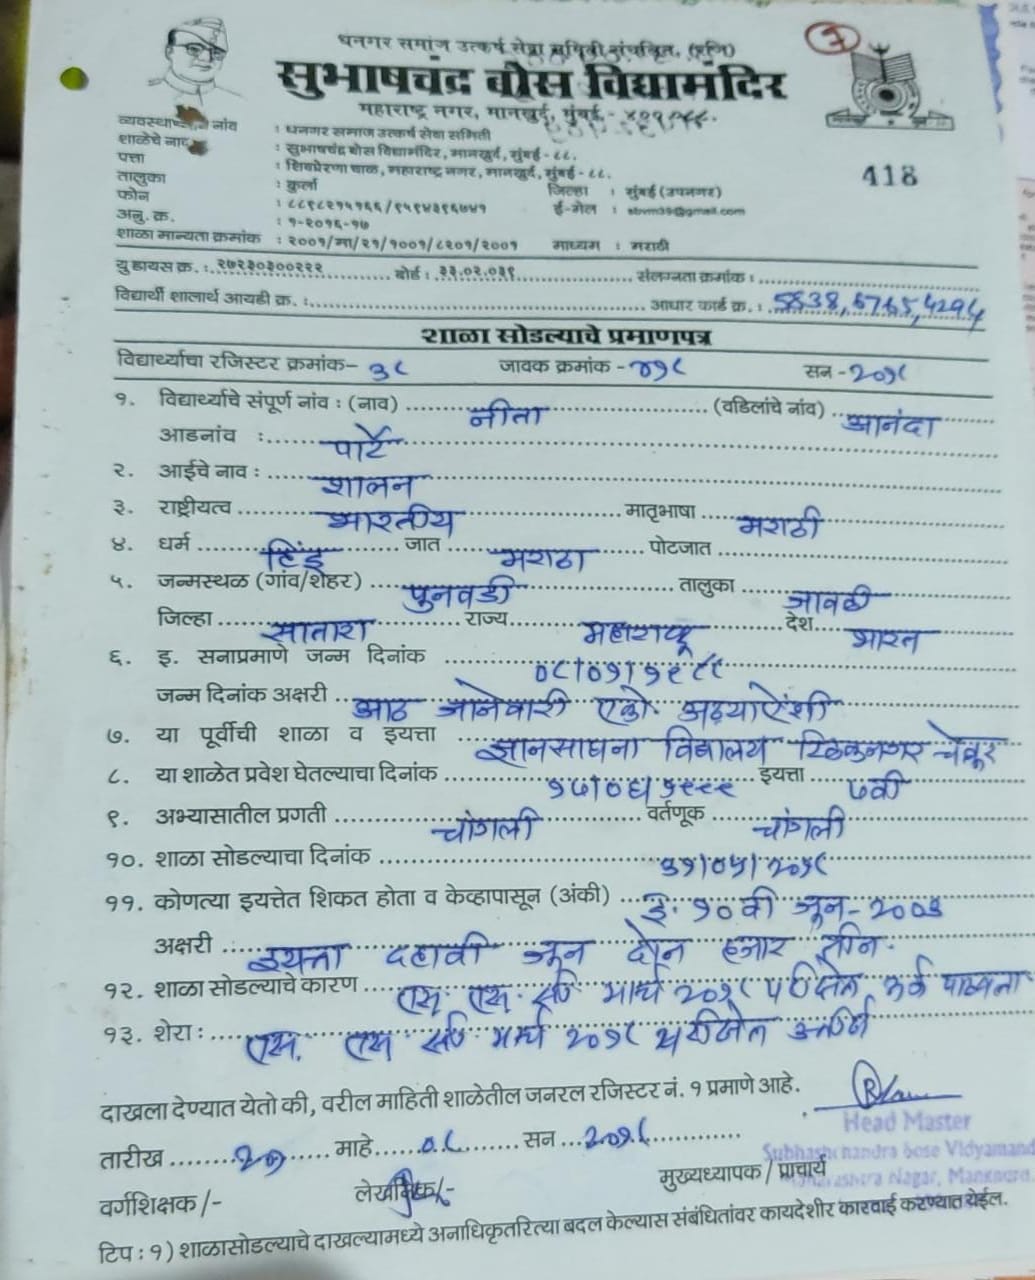 धनगर समाज उत्कर्ष सेवा समिती संचलित, (रजि)
सुभाषचंद्र बोस विद्यामंदिर
महाराष्ट्र नगर, मानखुर्द, मुंबई -
व्यवस्थाप नांव : धनगर समाज उत्कर्ष सेवा समिती
शाळेचे नाव : सुभाषचंद्र बोस विद्यामंदिर, मानखुर्द, मुंबई - ८८.
पत्ता : शिवप्रेरणा चाळ, महाराष्ट्र नगर, मानखुर्द, मुंबई - ८८.
418
तालुका : कुर्ला जिल्हा : मुंबई (उपनगर)
फोन : ८८९८२१५१६६/९५९४३९६७४१ ई-मेल : sbvm39@gmail.com
अनु. क्र. : १-२०१६-१७
शाळा मान्यता क्रमांक : २००१/मा/२१/१००१/८२०१/२००१ माध्यम : मराठी
युडायस क्र. : २७२३०३००२२२ बोर्ड : ३३.०२.०३९ संलग्नता क्रमांक :
विद्यार्थी शालार्थ आयडी क्र. : आधार कार्ड क्र. : 5838, 5765, 4294
शाळा सोडल्याचे प्रमाणपत्र
विद्यार्थ्याचा रजिस्टर क्रमांक- ३८ जावक क्रमांक - ४१८ सन - २०१८
१. विद्यार्थ्याचे संपूर्ण नांव : (नाव) नीता (वडिलांचे नांव) आनंदा
आडनांव : पार्टे
२. आईचे नाव : शालन
३. राष्ट्रीयत्व भारतीय मातृभाषा मराठी
४. धर्म हिंदु जात मराठा पोटजात
५. जन्मस्थळ (गांव/शहर) पुनवडी तालुका जावळी
जिल्हा सातारा राज्य महाराष्ट्र देश भारत
६. इ. सनाप्रमाणे जन्म दिनांक ०८/०१/१९८८
जन्म दिनांक अक्षरी आठ जानेवारी एको अठ्याऐंशी
७. या पूर्वीची शाळा व इयत्ता ज्ञानसाधना विद्यालय टिळकनगर चेंबूर
८. या शाळेत प्रवेश घेतल्याचा दिनांक १७/०६/१९९९ इयत्ता ७वी
९. अभ्यासातील प्रगती चांगली वर्तणूक चांगली
१०. शाळा सोडल्याचा दिनांक ३१/०५/२०१८
११. कोणत्या इयत्तेत शिकत होता व केव्हापासून (अंकी) इ. १० वी जून - 2003
अक्षरी : इयत्ता दहावी जून दोन हजार तीन.
१२. शाळा सोडल्याचे कारण एस. एस. सी मार्च २०१८ परीक्षेत
१३. शेरा : एस. एस. सी मार्च २०१८ परीक्षेत उत्तीर्ण
दाखला देण्यात येतो की, वरील माहिती शाळेतील जनरल रजिस्टर नं. १ प्रमाणे आहे.
तारीख २१ माहे ०८ सन २०१८
Head Master
Subhashchandra Bose Vidyamand
Maharashtra Nagar, Mankhurd.
वर्गशिक्षक/- लेखनिक/- मुख्यध्यापक/प्राचार्य
टिप : १) शाळासोडल्याचे दाखल्यामध्ये अनाधिकृतरित्या बदल केल्यास संबंधितांवर कायदेशीर कारवाई करण्यात येईल.